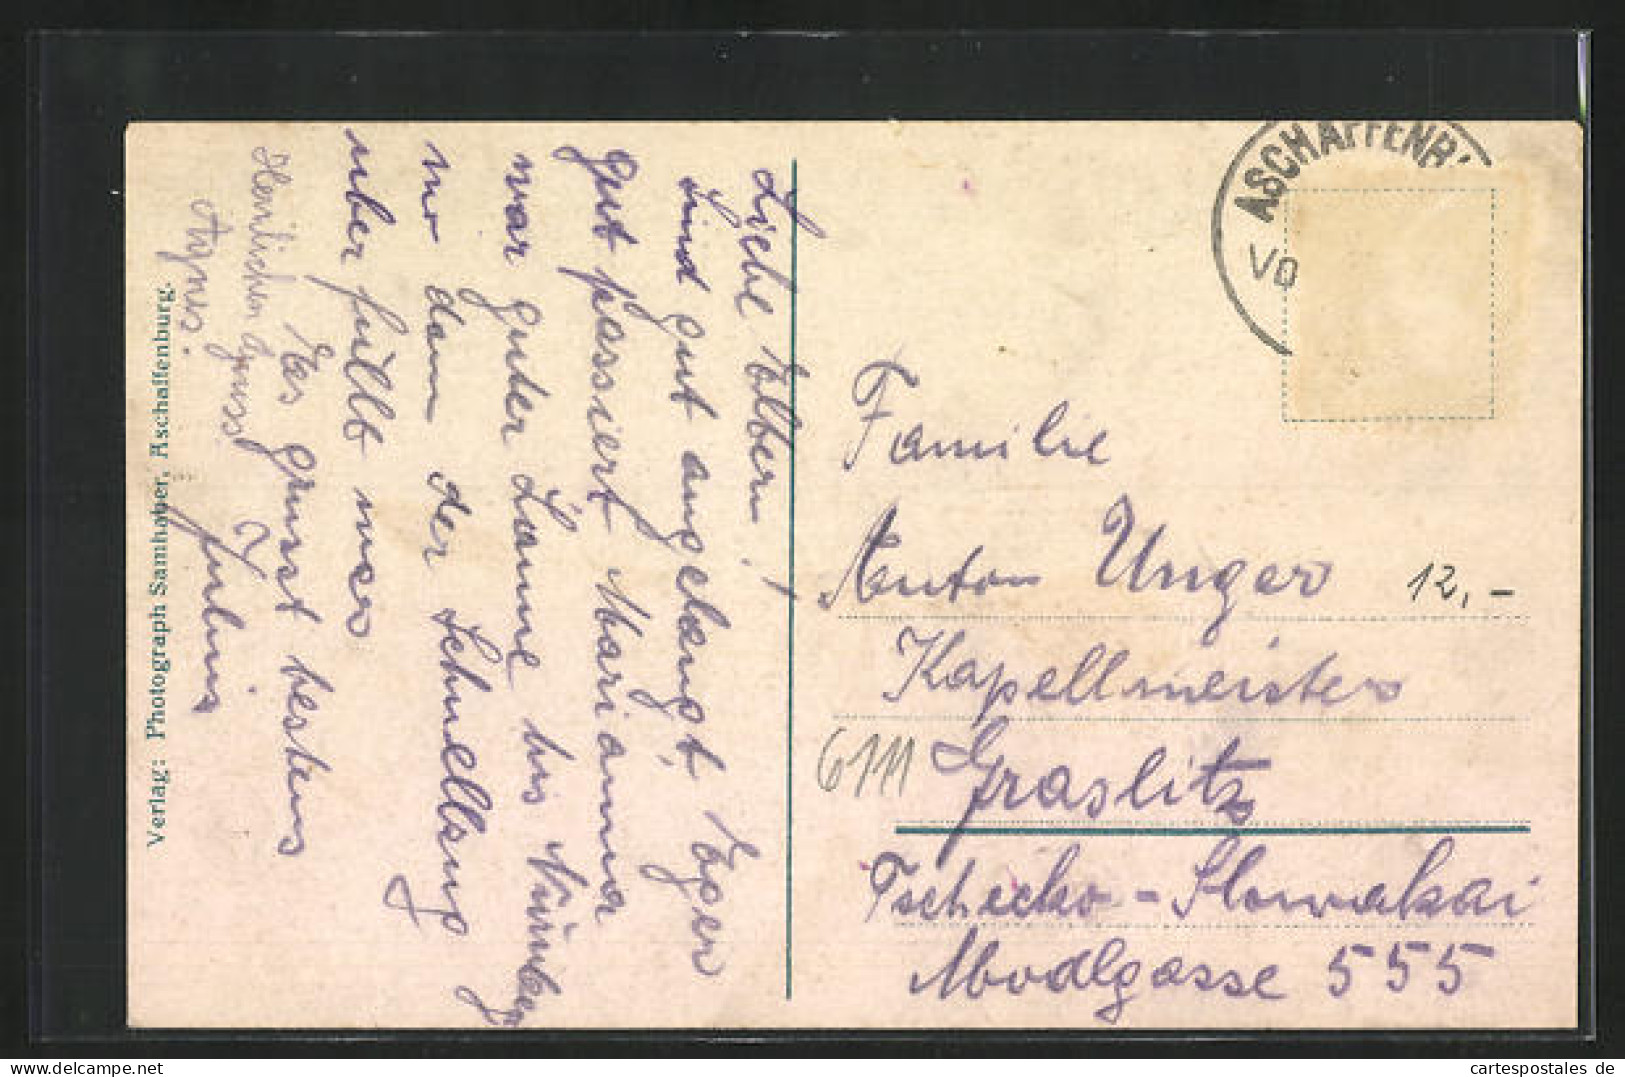 Liebe Eltern!
Sind gut angelangt, Eger
gut passiert Marianna
war guter Laune bis Nürnberg
wo dann der Schnellzug
überfüllt war
Es grüsst bestens
Julius
Herzlichen Gruss
Agnes.
Verlag: Photograph Samhaber, Aschaffenburg.
ASCHAFFENB
VO
Familie
Anton Unger
12,-
Kapellmeister
6111
Graslitz
Tschecko-Slowakai
Modlgasse 555
www.cartespostales.de
cartespostales de